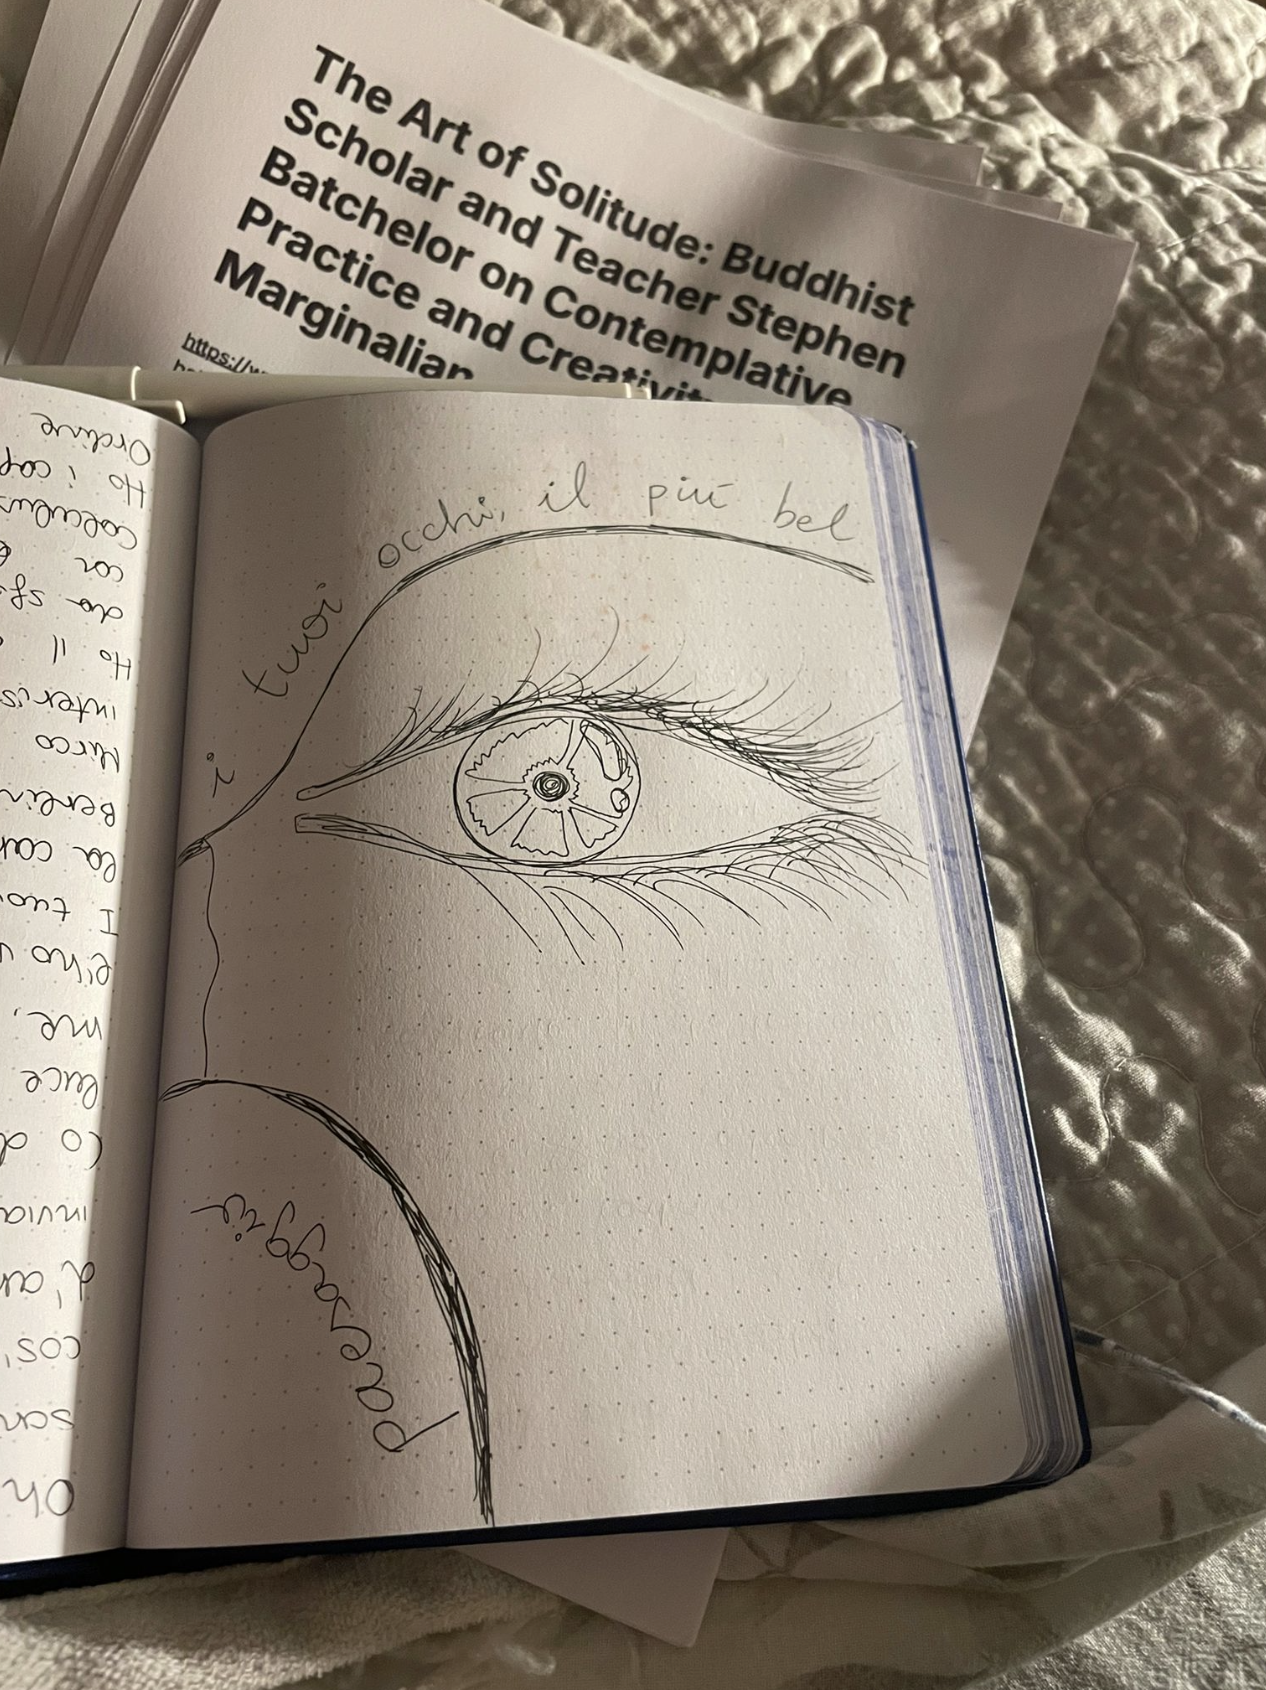 The Art of Solitude: Buddhist
Scholar and Teacher Stephen
Batchelor on Contemplative
Practice and Creativity
Marginalian
https://w
i tuoi occhi, il più bel
paesaggio
Ordine
Ho i cap
calculus
cor
da sf
Ho il
interis
Marco
Berlin
la car
I tuo
e ho
me,
luce
co d
invia
d'an
così,
san
Oh